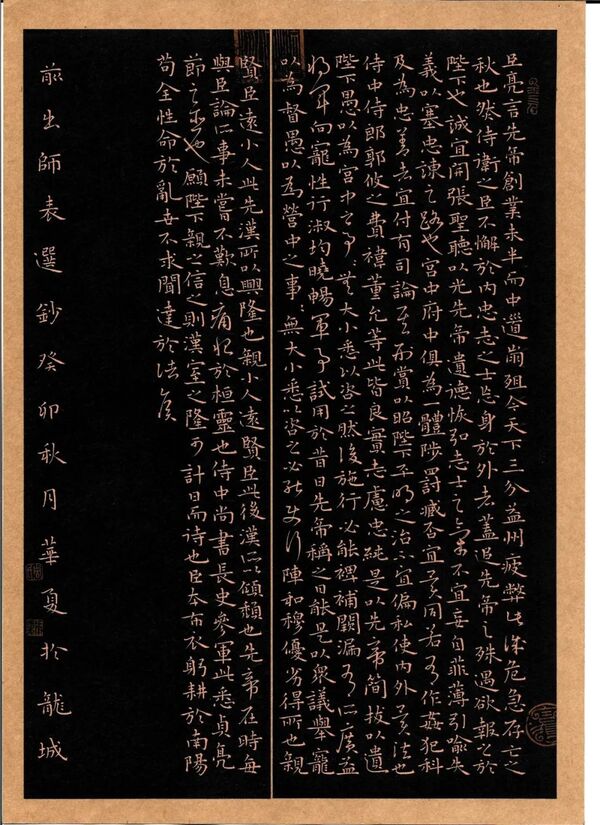 臣亮言先帝創業未半而中道崩殂今天下三分益州疲弊此誠危急存亡之
秋也然侍衛之臣不懈於內忠志之士忘身於外者蓋追先帝之殊遇欲報之於
陛下也誠宜開張聖聽以光先帝遺德恢弘志士之氣不宜妄自菲薄引喻失
義以塞忠諫之路也宮中府中俱為體陟罰臧否宜異同若有作姦犯科
及為忠善者宜付有司論其刑賞以昭陛下平明之治不宜偏私使內外異法也
侍中侍郎郭攸之費禕董允等此皆良實志慮忠純是以先帝簡拔以遺
陛下愚以為宮中之事無大小悉以咨之然後施行必能裨補闕漏有所廣益
將軍向寵性行淑均曉暢軍事試用於昔日先帝稱之曰能是以眾議舉寵
以為督愚以為營中之事無大小悉以咨之必能使行陣和穆優劣得所也親
賢臣遠小人此先漢所以興隆也親小人遠賢臣此後漢所以傾頹也先帝在時每
與臣論此事未嘗不歎息痛恨於桓靈也侍中尚書長史參軍此悉貞亮
節之臣也願陛下親之信之則漢室之隆可計日而待也臣本布衣躬耕於南陽
苟全性命於亂世不求聞達於諸侯
前出師表選鈔癸卯秋月華夏於龍城